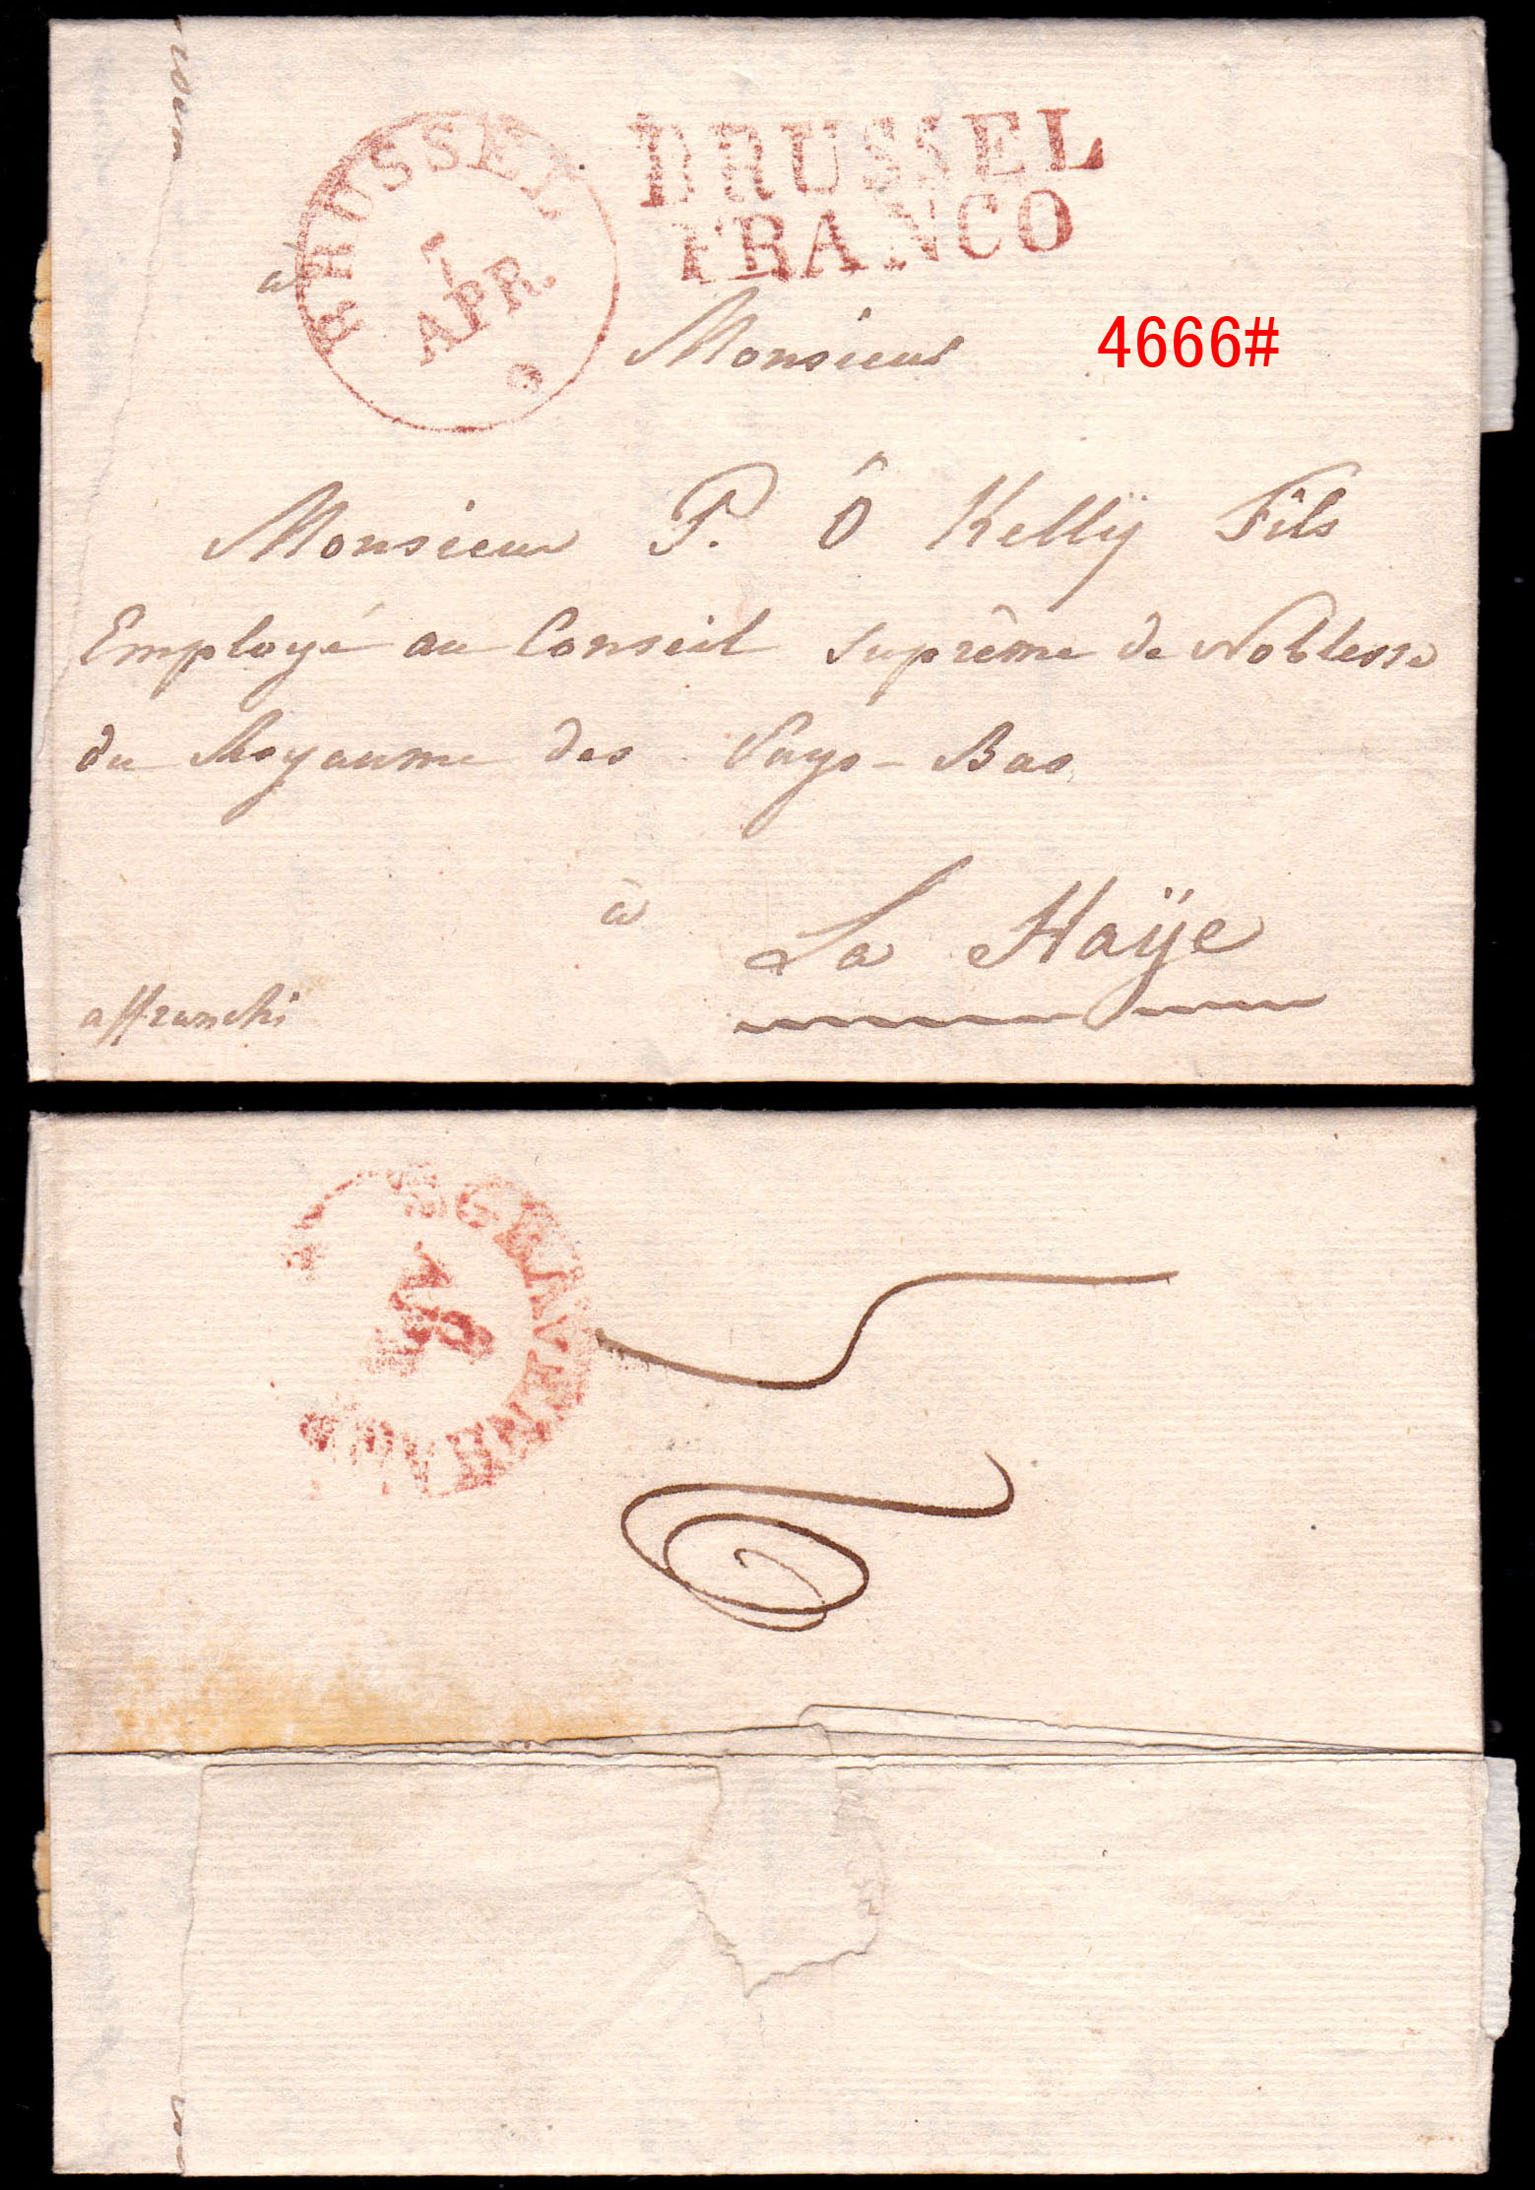 BRUSSEL
7
APR.
BRUSSEL
FRANCO
4666#
à
Monsieur
Monsieur P. Ô Kellÿ Fils
Employé au Conseil suprême de Noblesse
du Royaume des Pays-Bas
à
La Haÿe
affranchi
SGRAVENHAGE